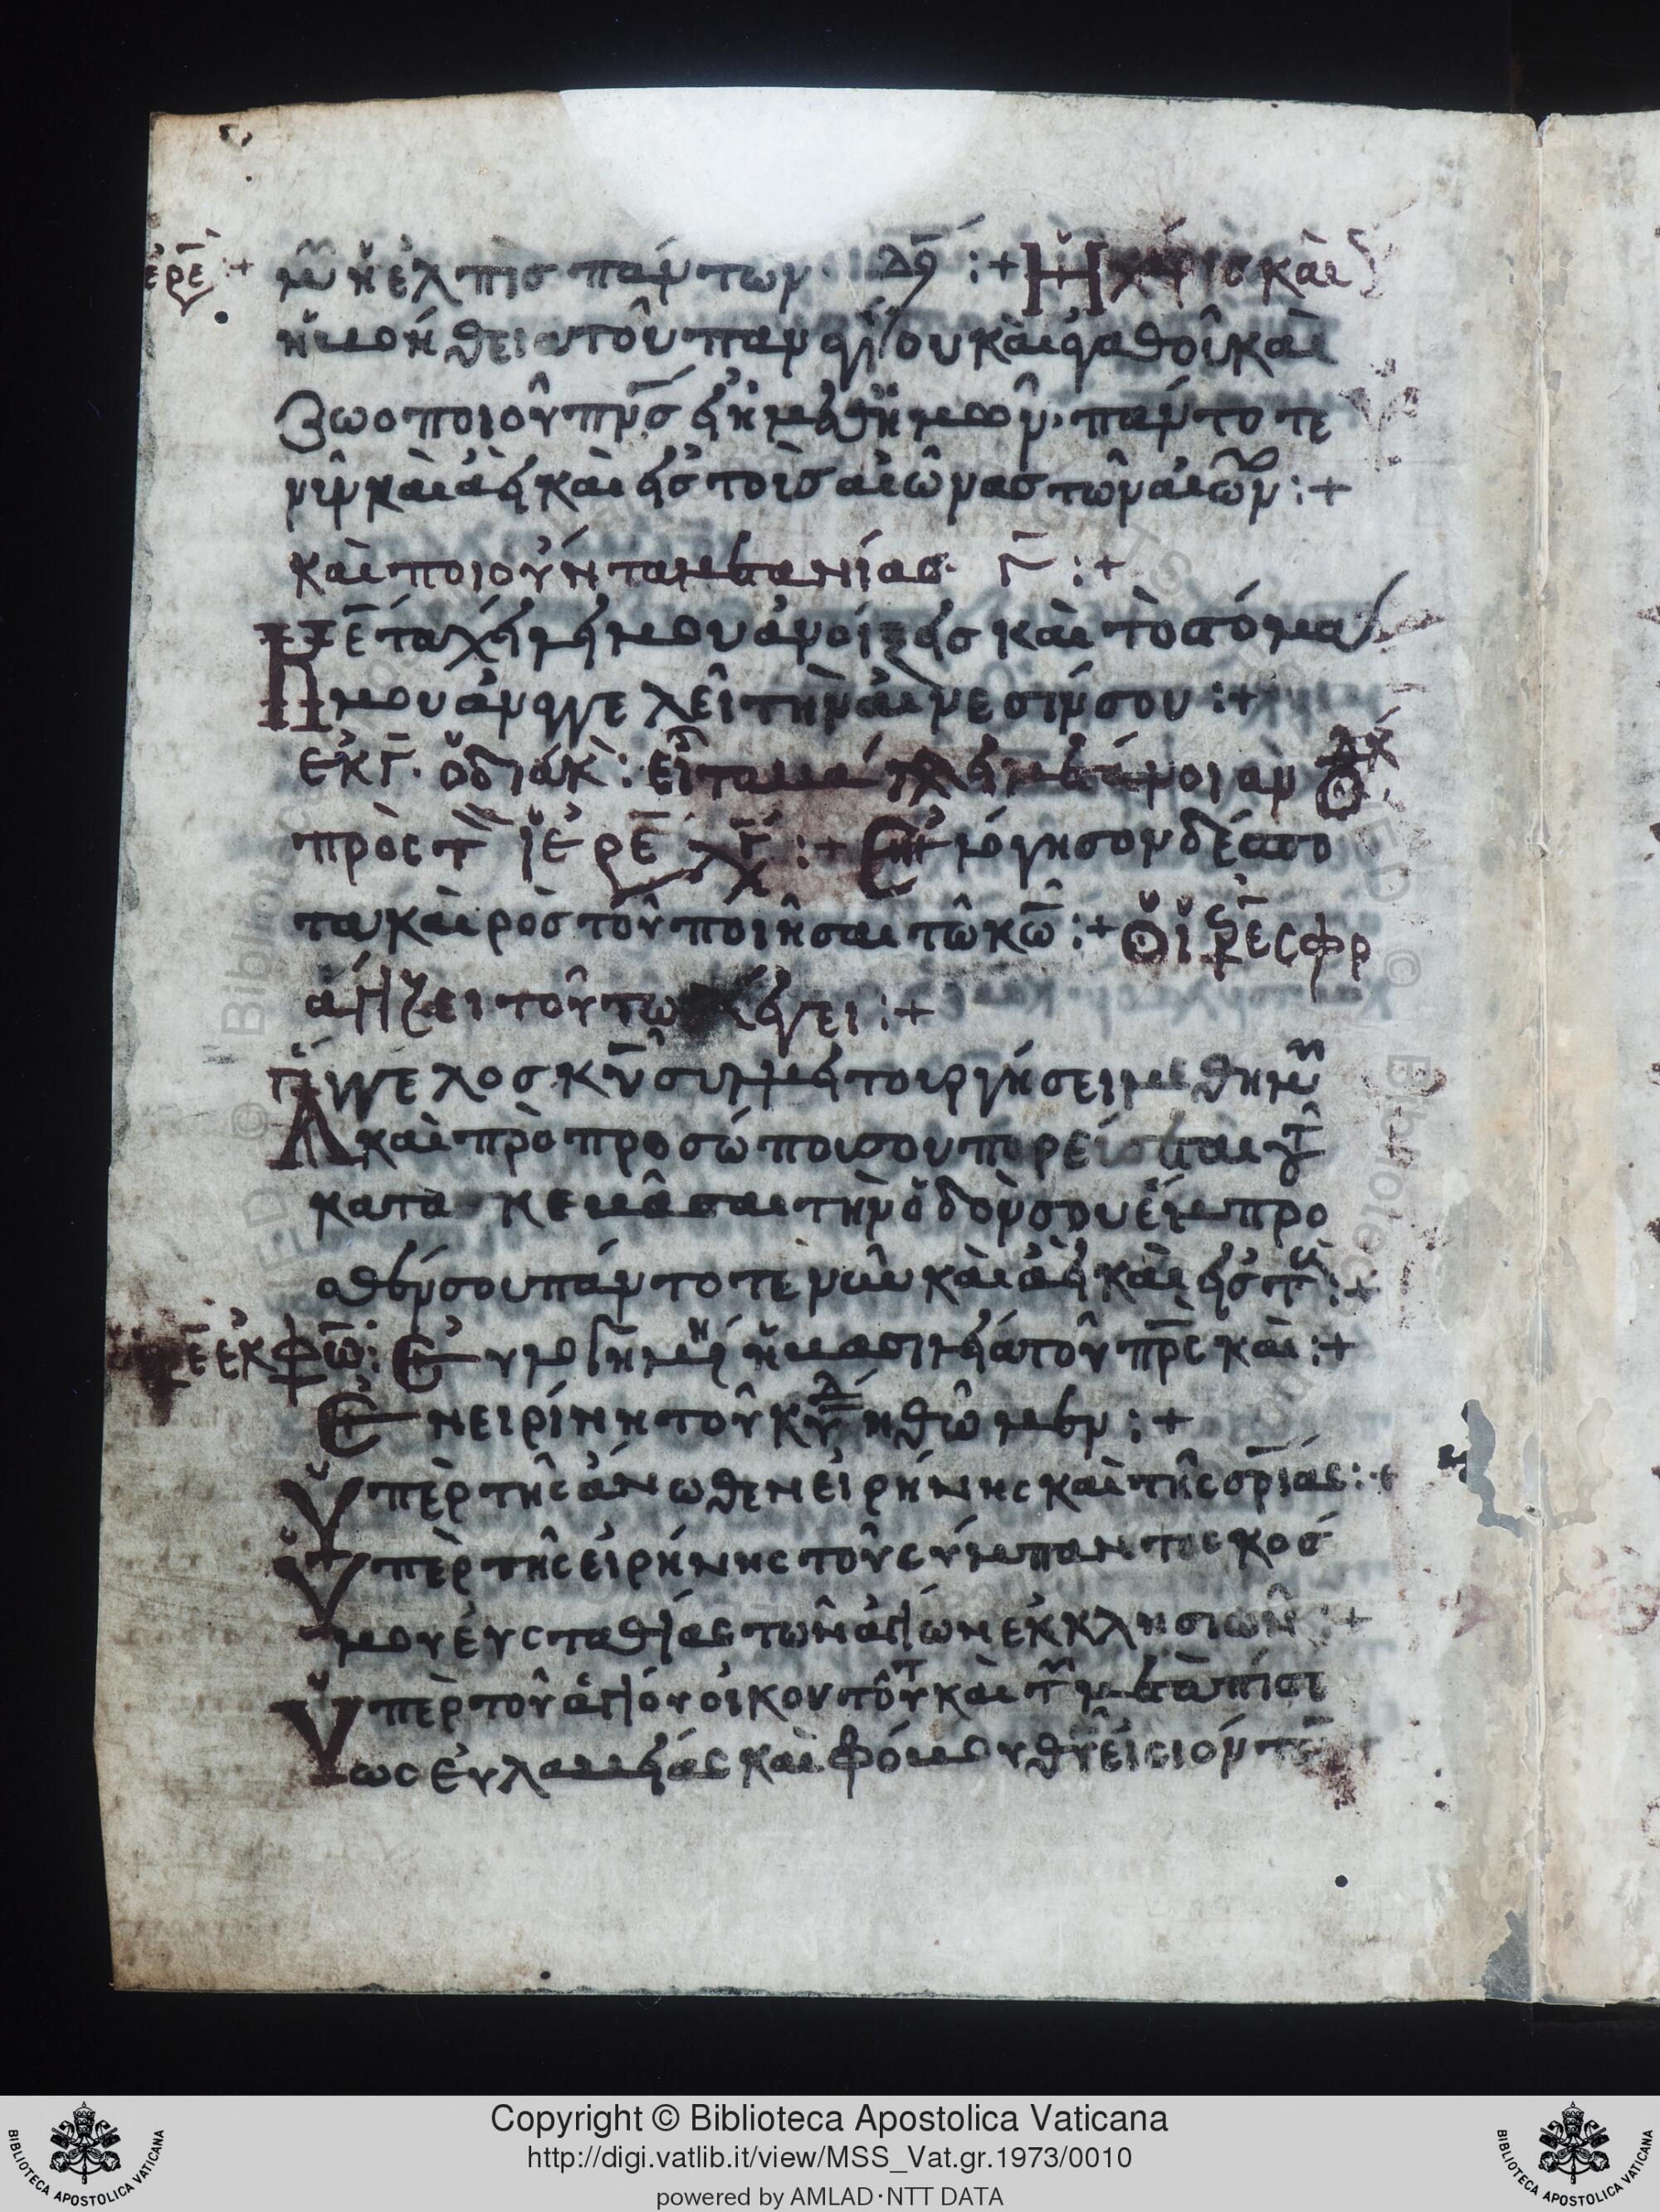 μῶν ἡ ἐλπὶσ πάντων· :+ Ἡ χάρισ καὶ
ἡ βοήθεια τοῦ παναγίου καὶ ἀγαθοῦ καὶ
ζωοποιοῦ πνσ εἴη μεθ ἡμῶν· πάντοτε
νῦν καὶ ἀεὶ καὶ εἰσ τοὶσ αἰῶνασ τῶν αἰων :+
καὶ ποιοὺν μετανίασ· Γ :+
Κε τὰ χείλη μου ἀνοίξεισ καὶ τὸ στόμα
μου ἀναγγελεῖ τὴν αἴνεσίν σου :+
ἐκ Γ. ὁ διάκ :
πρὸς τ ἱερε :+ Εὐλόγησον δέσπο
τα καιρὸσ τοῦ ποιῆσαι τῶ κω :+ Ὁ ἱερε σφρ
αγίζει τοῦτω λέγει :+
Ἄγγελοσ κυ συλλειτουργήσει μεθημ
καὶ πρὸ προσώπου σου πορεύσεται τ
κατασκευάσαι τὴν ὁδόν σου ἔμπρο
σθέν σου πάντοτε νῦν καὶ ἀεὶ καὶ εἰσ τ :+
ἐκφω: Εὐλογημέ ἡ βασιλεία τοῦ πρς καὶ :+
Ἐν εἰρίνη τοῦ κυ δεηθῶμεν :+
Ὑπὲρ τῆς ἄνωθεν εἰρήνης καὶ τῆς σριας :+
Ὑπὲρ τῆς εἰρήνης τοῦ σύμπαντος κόσ
μου εὐσταθίας τῶν ἁγίων ἐκκλησιῶν :+
Ὑπὲρ τοῦ ἁγίου οἴκου τούτ καὶ τ μετὰ πίστ
εως εὐλαβείας καὶ φόβου θυ εἰσιόντ
Copyright © Biblioteca Apostolica Vaticana
http://digi.vatlib.it/view/MSS_Vat.gr.1973/0010
powered by AMLAD·NTT DATA
BIBLIOTECA APOSTOLICA VATICANA
BIBLIOTECA APOSTOLICA VATICANA